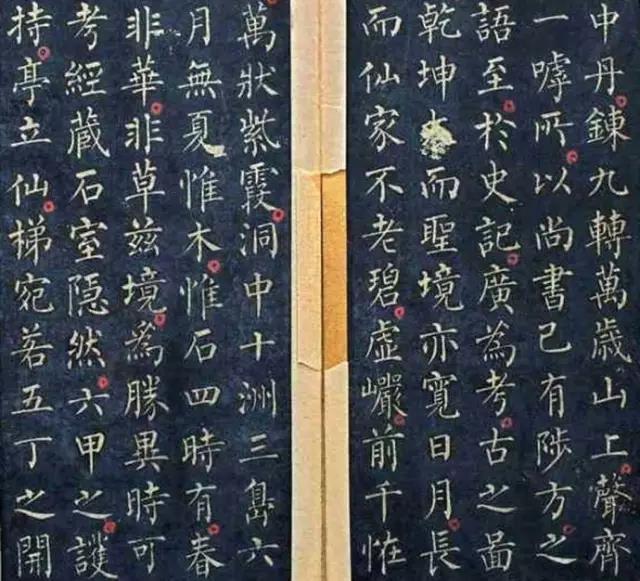 中丹鍊九轉萬歲山上聲齊
一嘑所以尚書已有陟方之
語至於史記廣為考古之啚
乾坤大而聖境亦寬日月長
而仙家不老碧虛巗前千恠
萬狀紫霞洞中十洲三島六
月無夏惟木惟石四時有春
非華非草茲境為勝異時可
考經藏石室隱然六甲之護
持亭立仙梯宛若五丁之開